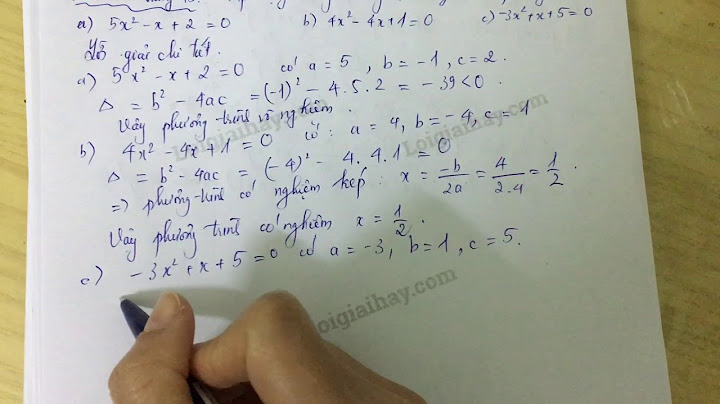 a) 5x² - x + 2 = 0 b) 4x² - 4x + 1 = 0 c) -3x² + x + 5 = 0
giải chi tiết.
a) 5x² - x + 2 = 0 có a = 5, b = -1, c = 2.
Δ = b² - 4ac = (-1)² - 4.5.2 = -39 < 0.
Vậy phương trình vô nghiệm.
b) 4x² - 4x + 1 = 0 có: a = 4, b = -4, c = 1
Δ = b² - 4ac = (-4)² - 4.4.1 = 0
=> phương trình có nghiệm kép: x = -b/2a = 4/2.4 = 1/2.
Vậy phương trình có nghiệm x = 1/2.
c) -3x² + x + 5 = 0 có a = -3, b = 1, c = 5.
Loigiaihay.com
Loigiaihay.com
Loigiaihay.com